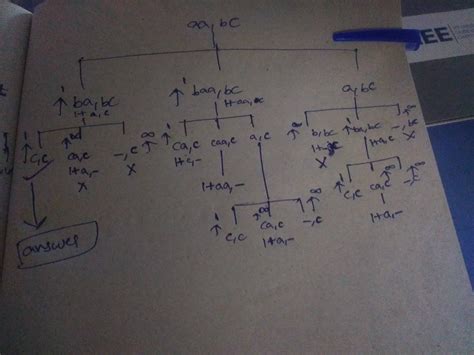 aa,bc
↑1 ba,bc ↑1 baa,bc a,bc
1+a,c 1+aa,c
↑1 c,c ↑∞ ca,c -,c ↑∞ ↑1 ca,c caa,c a,c ↑∞ b,bc ↑1 ba,bc -,bc ↑∞
1+a,- 1+c,- 1+a,c
X X X
1+aa,- ↑1 c,c ca,c ↑∞ -,c
1+a,-
↑1 c,c ↑∞ ca,c ↑∞ -,c
1+a,-
answer
EE